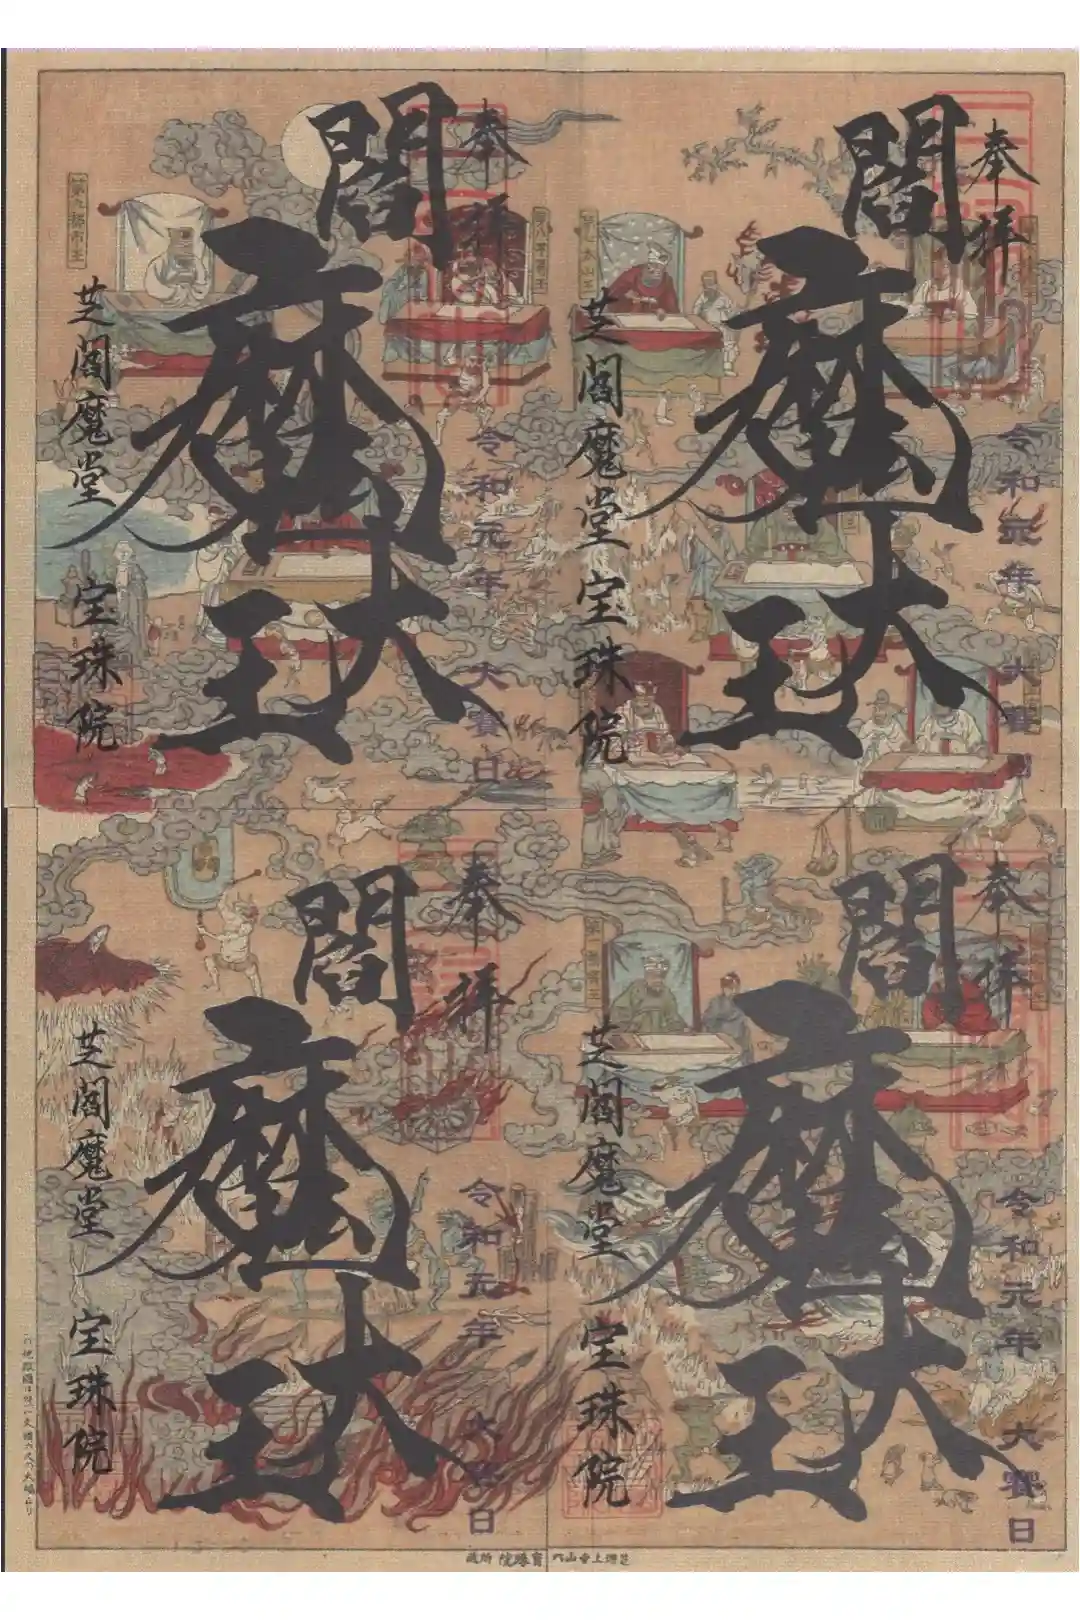 奉拝
閻魔大王
令和元年 大賽日
芝閻魔堂 宝珠院
第七太山王
奉拝
閻魔大王
令和元年 大賽日
芝閻魔堂 宝珠院
第八平等王
第九都市王
奉拝
閻魔大王
令和元年 大賽日
芝閻魔堂 宝珠院
奉拝
閻魔大王
令和五年 大賽日
芝閻魔堂 宝珠院
芝増上寺山内 寳珠院 所蔵